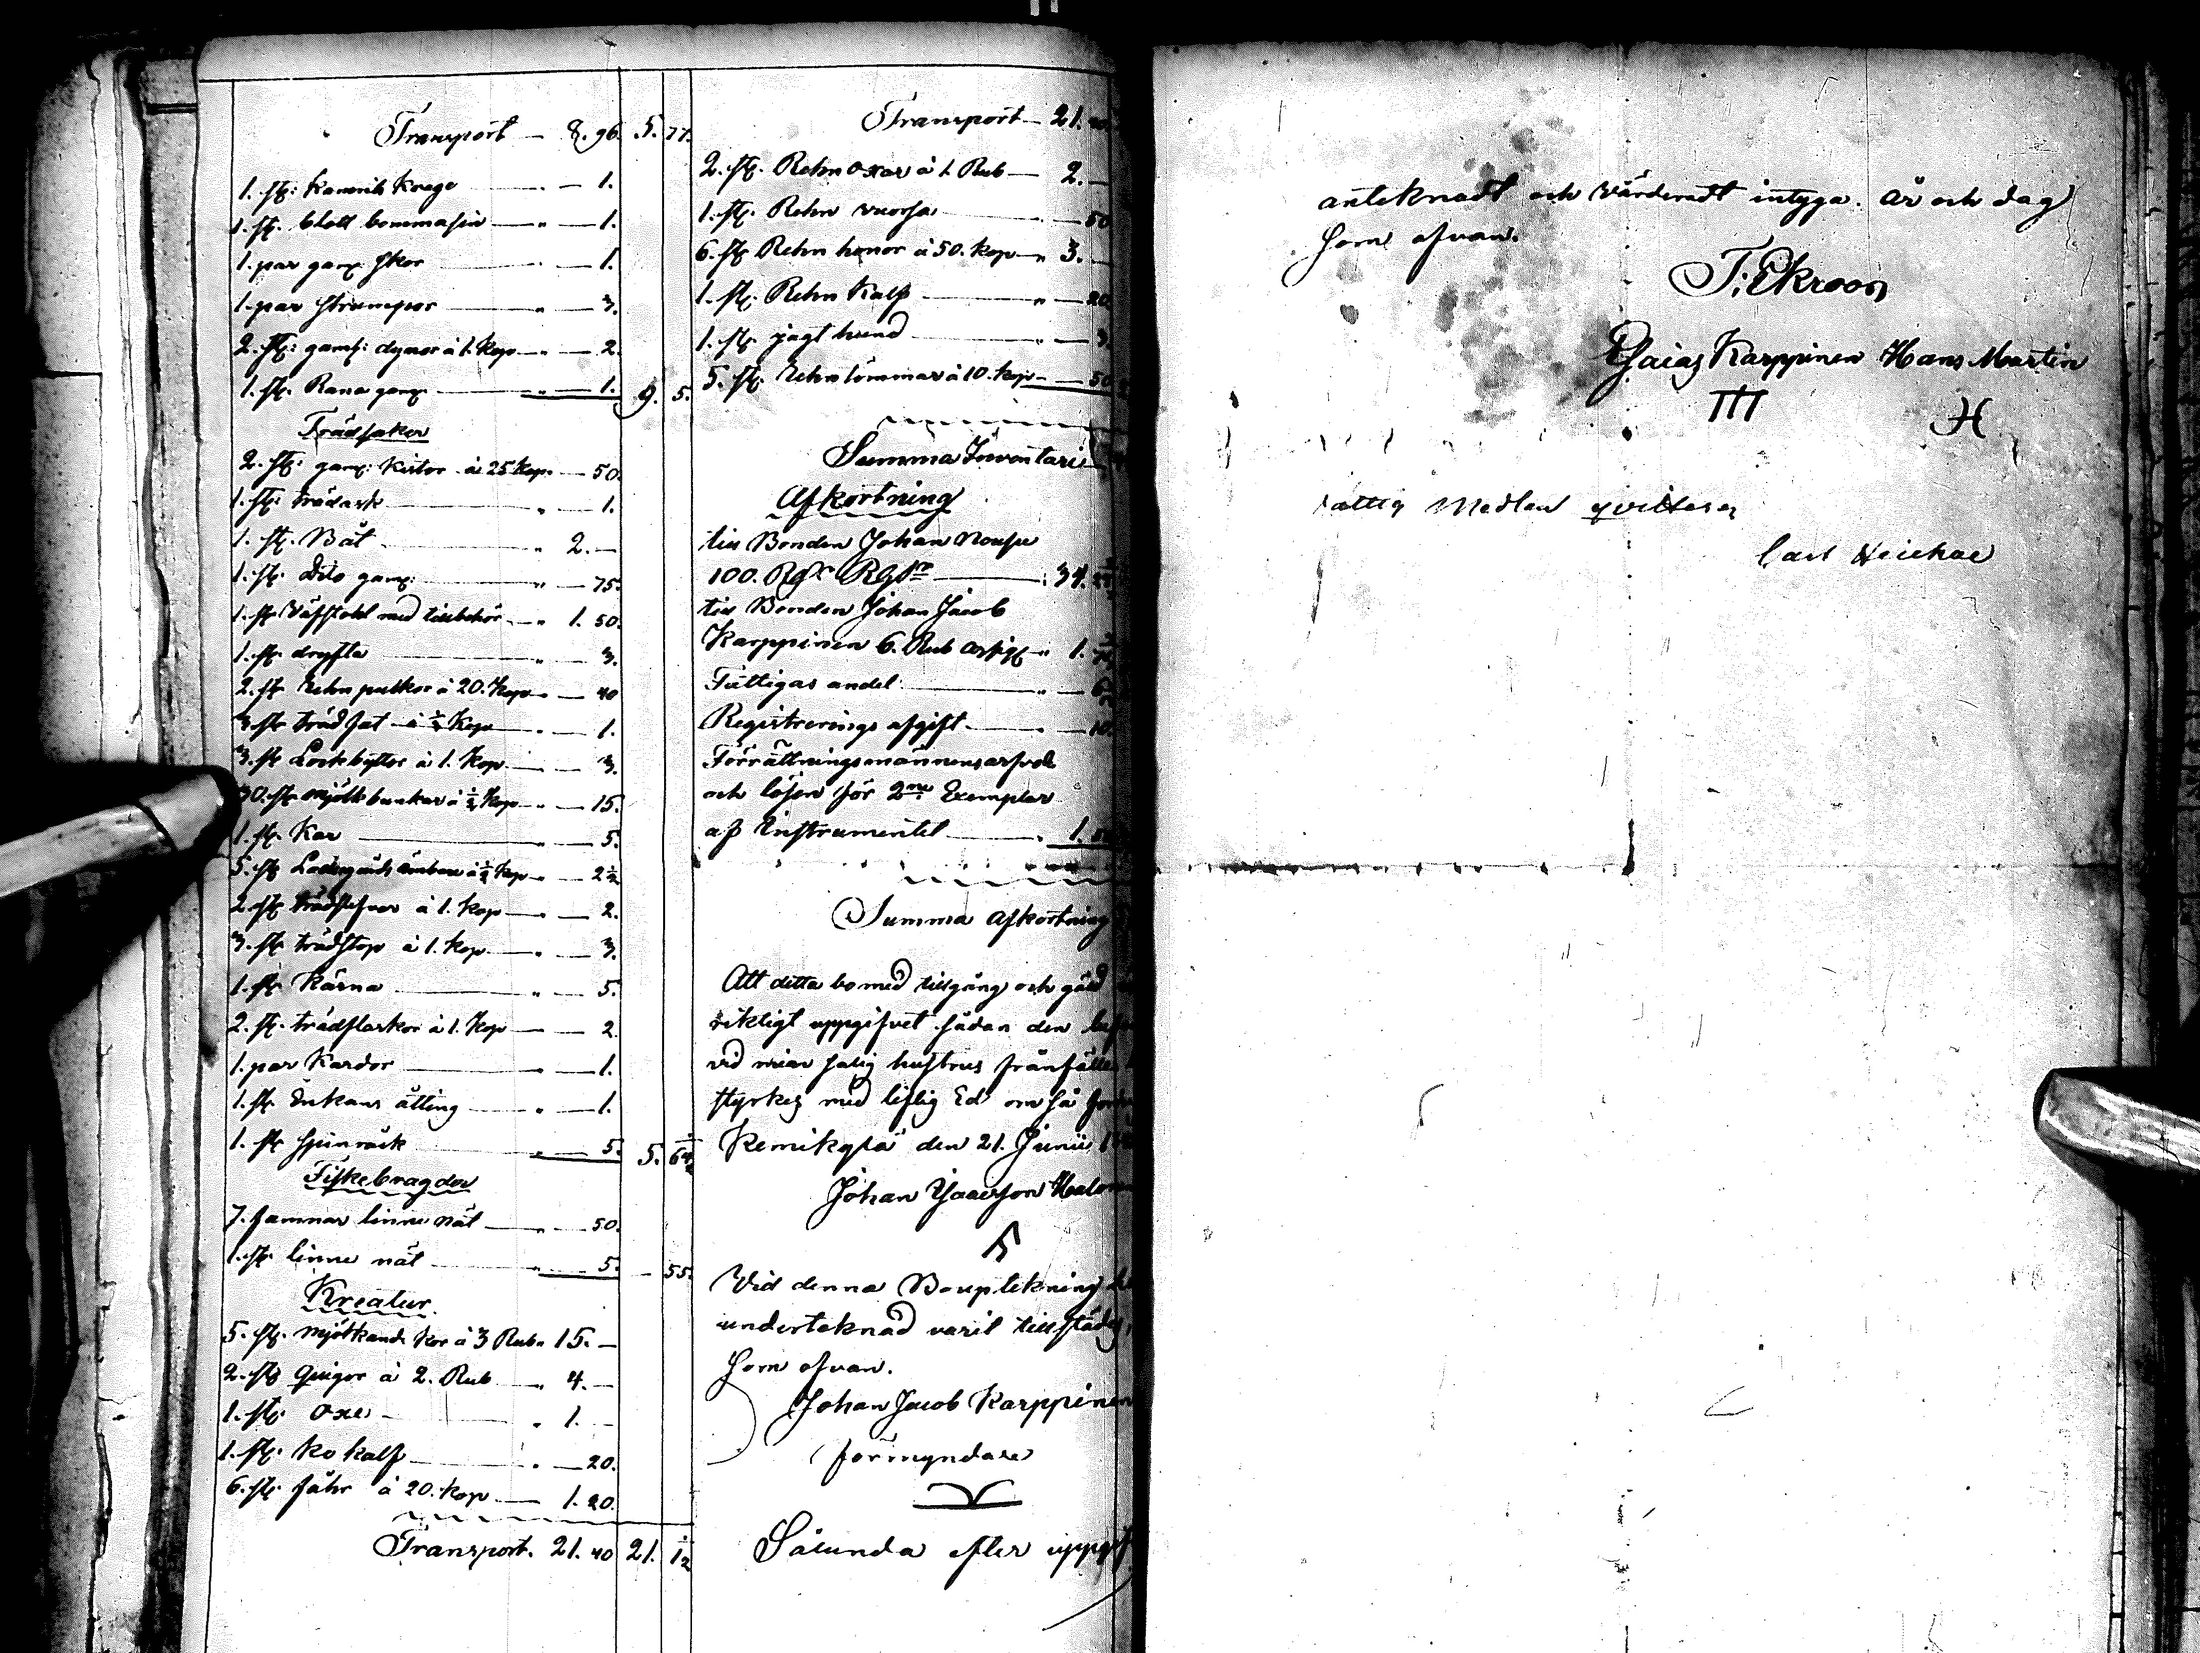 Transport — 8. 96. 5. 77.
1. st: Kamrik Krage — 1.
1. st. blott bommasin — 1.
1. par gam: skor — 1.
1. par strumpor — 3.
2. st: gaml: dynor à 1. kop — 2.
1. st. Rana gam: — 1. 9. 5.
Trädsaker
2. st: gam: Kistor à 25 kop. — 50.
1. st: trädask — 1.
1. st. Båt — 2. —
1. st. Dito gam: — 75.
1. st Väfstohl med tillbehör — 1. 50.
1. st. dryfta — 3.
2. st Rehn pulkor à 20. kop — 40
3. st träd fat à ½ kop — 1.
3. st Lock byttor à 1. kop — 3.
30. st mjölk bunkar à ½ kop — 15.
1. st. Kar — 5.
5. st. Ladugårds ämbare à ½ kop — 2½
2. st. träd à 1. kop — 2.
3. st trädstop à 1. kop — 3.
1. st Kärna — 5.
2. st. trädflaskor à 1. kop — 2.
1. par Kardor — 1.
1. st. Enkans åtting — 1.
1. st spinråck — 5. 5. 64½
Fiskebragder
7. famnar linne nät — 50.
1. st. linne nät — 5. — 55.
Kreatur
5. st. mjölkande kor à 3 Rub. 15. —
2. st Qvigor à 2. Rub — 4. —
1. st. oxe — 1. —
1. st. ko kalf — 20.
6. st. fåhr à 20. kop — 1. 20.
Transport. 21. 40 21. ½
Transport — 21.
2. st. Rehn oxar à 1. Rub — 2. —
1. st. Rehn vuorsa — 50
6. st Rehn honor à 50. kop — 3. —
1. st. Rehn Kalf — 20
1. st. jagt hund — 3.
5. st. Rehn tömmar à 10. kop — 50
Summa Inventarie
Afkortning
till Bonden Johan
100. Rgr Rgs — 34.
till Bonden Johan Jacob
Karppinen 6. Rub assign — 1.
Fattigas andel — 6
Registrerings afgift — 10.
Förrättningsmännens arfvode
och lösen för 2ne Exemplar
af Instrumentet — 1.
Summa afkortning
Att detta bo med tillgång och gäld
riktigt uppgifvet sådan den
vid min salig hustrus frånfälle
styrkes med liflig Ed om så
Kemikylä den 21. Junii
Johan
Vid denna Bouptekning
underteknad varit tillstädes,
som ofvan.
Johan Jacob Karppinen
förmyndare
Sålunda efter
anteknadt och värderadt intyga. år och dag
som ofvan.
T: Ekroos
Esaias Karppinen Hans Martin
III H
fattig Medlen qvitteras
Carl